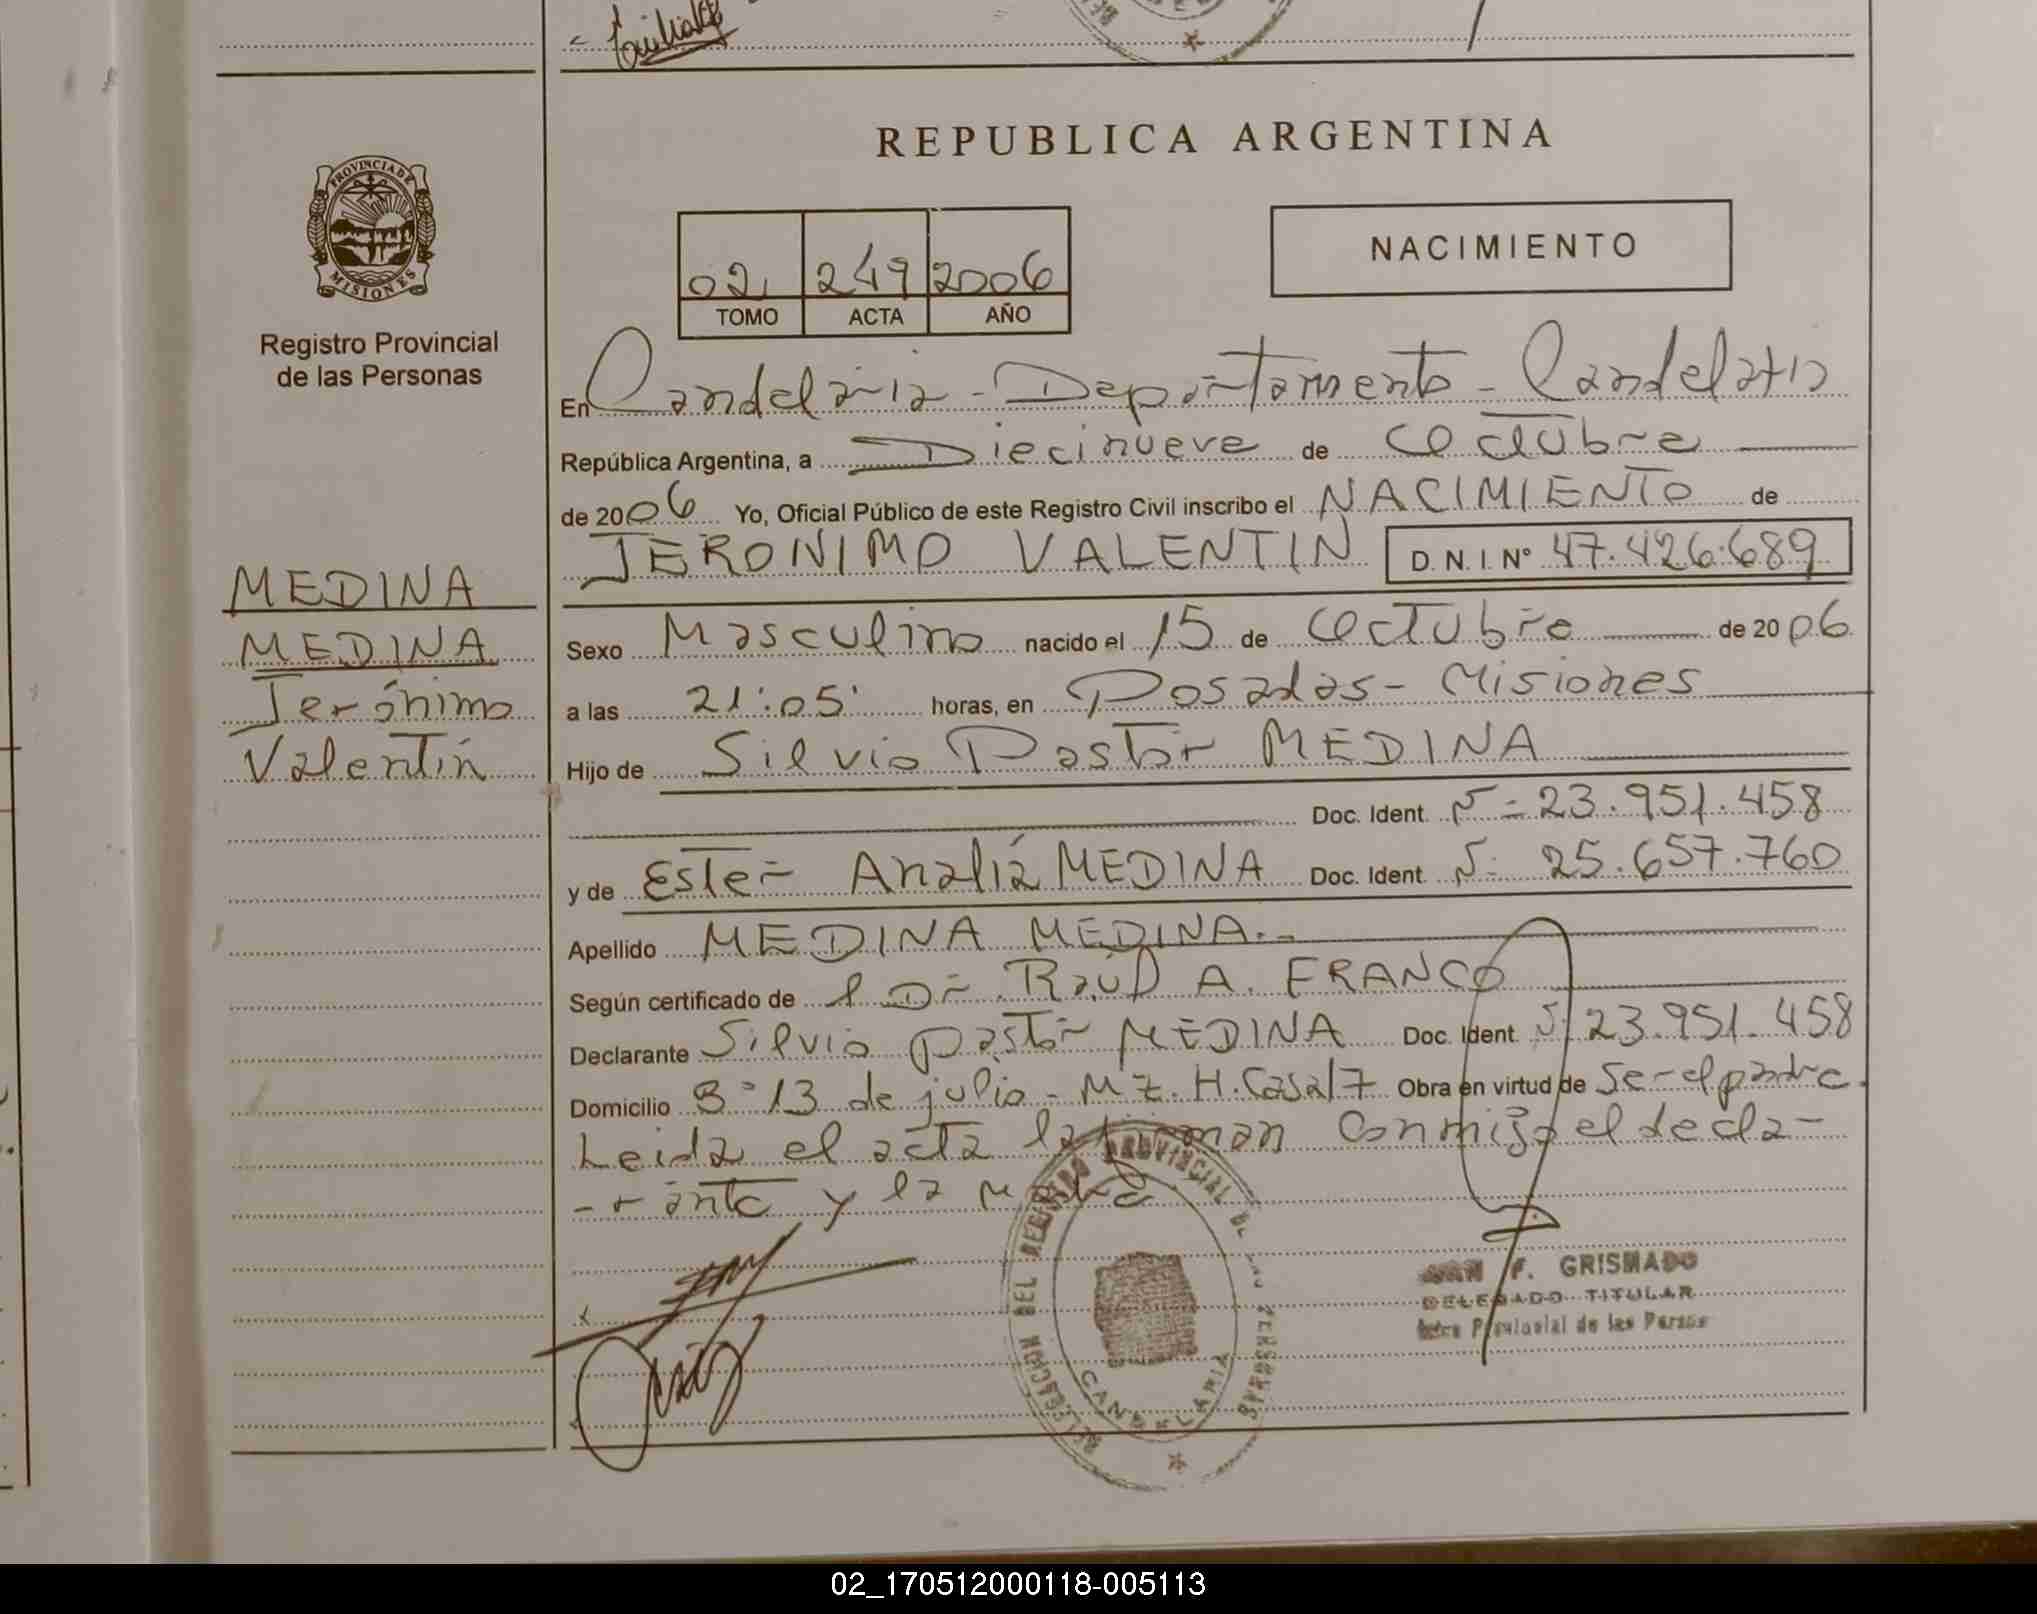 REPUBLICA ARGENTINA
PROVINCIA DE MISIONES
Registro Provincial
de las Personas
02 249 2006
TOMO ACTA AÑO
NACIMIENTO
En Candelaria - Departamento - Candelaria
República Argentina, a Diecinueve de Octubre
de 2006 Yo, Oficial Público de este Registro Civil inscribo el NACIMIENTO de
JERONIMO VALENTIN D.N.I.Nº 47.426.689
MEDINA
MEDINA
Jerónimo
Valentín
Sexo Masculino nacido el 15 de Octubre de 2006
a las 21:05' horas, en Posadas - Misiones
Hijo de Silvio Pastor MEDINA
Doc. Ident. Nº 23.951.458
y de Ester Analía MEDINA Doc. Ident. Nº 25.657.760
Apellido MEDINA MEDINA.-
Según certificado de l Dr. Raúl A. FRANCO
Declarante Silvio Pastor MEDINA Doc. Ident. Nº 23.951.458
Domicilio Bº 13 de julio - Mz. H. Casa 17 Obra en virtud de Ser el padre.
Leida el acta la firman Conmigo el decla-
-rante y la madre
DELEGACION DEL REGISTRO PROVINCIAL DE LAS PERSONAS
CANDELARIA
JUAN F. GRISMADO
DELEGADO TITULAR
Provincial de las Personas
02_170512000118-005113